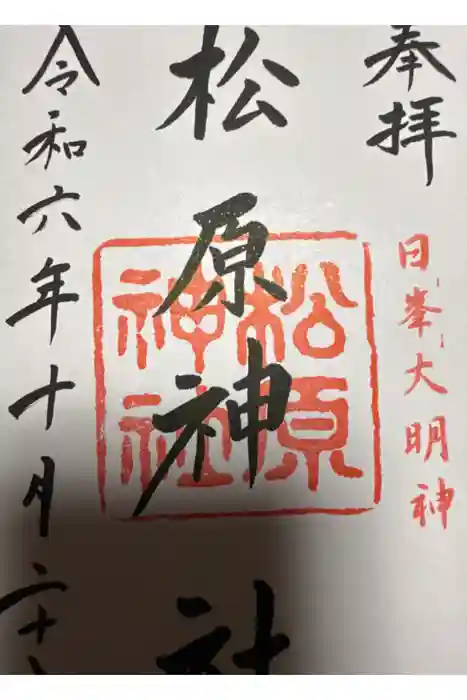 奉拝
日峯大明神
松原神社
松原神社
令和六年十月二十